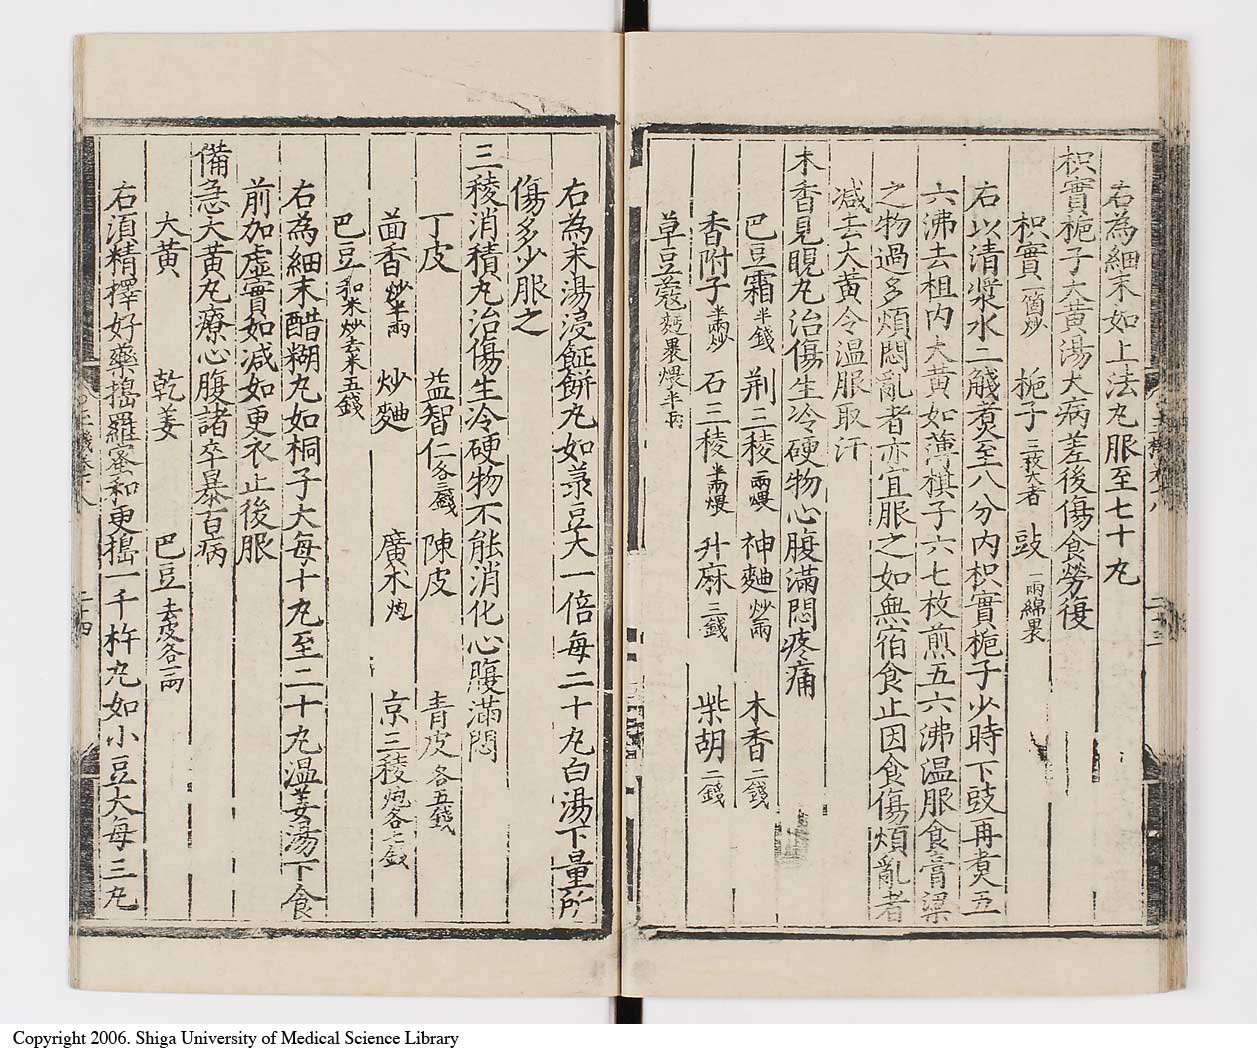 右為細末如上法丸服至七十丸
枳實梔子大黄湯大病差後傷食勞復
枳實一箇炒 梔子三枚大者 豉一兩綿裹
右以清漿水二觥煮至八分内枳實梔子少時下豉再煮五
六沸去柤内大黄如薄棋子六七枚煎五六沸温服食膏粱
之物過多煩悶亂者亦宜服之如無宿食止因食傷煩亂者
减去大黄令温服取汗
木香見睍丸治傷生冷硬物心腹滿悶疼痛
巴豆霜半錢 荆三稜一兩煨 神麯炒一兩 木香二錢
香附子半兩炒 石三稜半兩煨 升麻三錢 柴胡二錢
草豆蔻麪裹煨半兩
右為末湯浸蒸餅丸如菉豆大一倍每二十丸白湯下量所
傷多少服之
三稜消積丸治傷生冷硬物不能消化心腹滿悶
丁皮 益智仁各三錢 陳皮 青皮各五錢
茴香炒半兩 炒麯 廣木炮 京三稜炮各七錢
巴豆和米炒去米五錢
右為細末醋糊丸如桐子大每十丸至二十丸温姜湯下食
前加虛實如减如更衣止後服
備急大黄丸療心腹諸卒暴百病
大黄 乾姜 巴豆去皮各一兩
右須精擇好藥搗羅蜜和更搗一千杵丸如小豆大每三丸
二十四
Copyright 2006. Shiga University of Medical Science Library